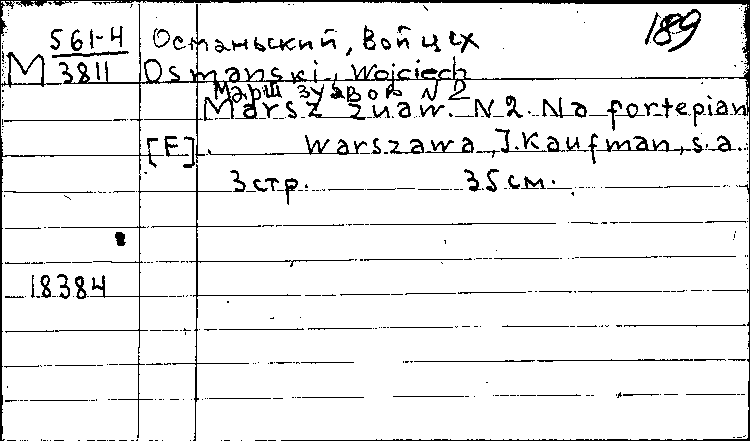 189
561-4 Останьский, Войцех
М 3811 Osmanski, Wojciech
Марш зуавов N 2
Marsz zuaw. N 2. Na fortepian
[F]. Warszawa, J. Kaufman, s.a.
3 стр. 35 см.
18384